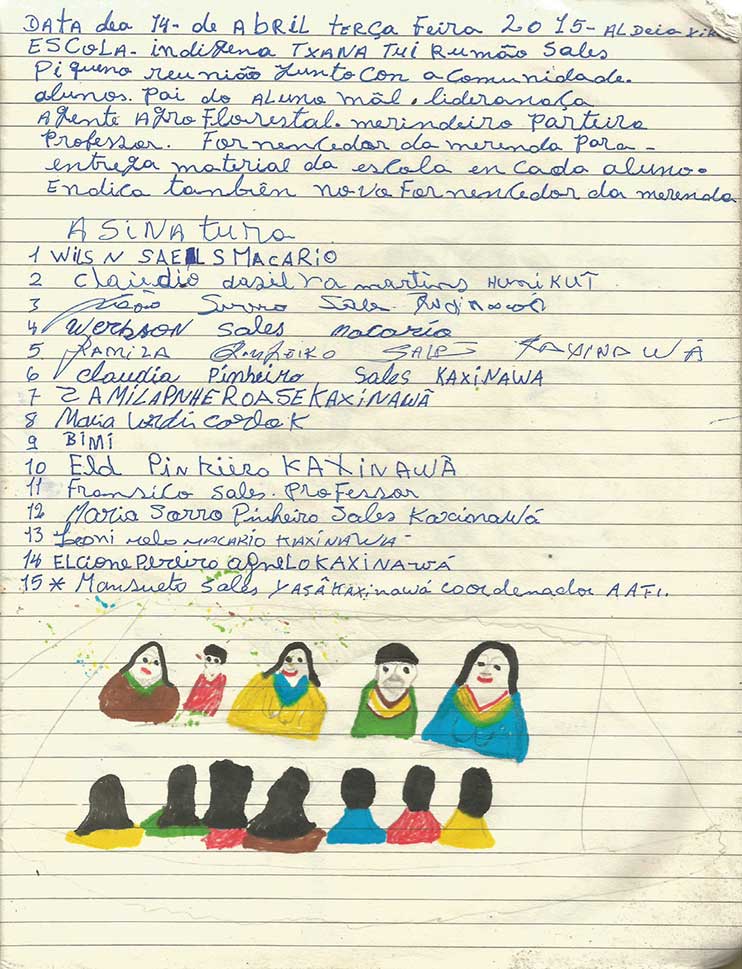 DATA dea 14- de AbRiL teRÇA feira 2015- ALDeia xik
ESCOLA- indigena TXANA TUI Rumão Sales
Piqueno reunião Junto Con a Comunidade.
alunos. Pai do ALuno mãl. lideranaça
Agente AgroFlorestal. merindeiro Parteira
Professor. Fornencedor da merenda Para -
entrega material da escola en Cada aluno.
Endica tambên novo Fornencedor da merenda
ASiNAtura
1 WilS N SAELS MACARiO
2 Claúdio dasilva martins HuniKUĨ
3 Sales
4 WERKSON Sales macario
5 RAMiZA SALES KAXINAWÁ
6 claudia Pinheiro Sales KAXiNAWA
7 ZAMILAPNHEROASEKAXiNAWÃ
8 Maria
9 BiMi
10 Eld Pinkiero KAXINAWÃ
11 Fransico Sales. PRoFessor
12 Maria Sorro Pinheiro Sales Kaxionawá
13 Leoni Melo MACARIO KAXiNAWA-
14 ELCionePereiro agneLoKAXiNAWÁ
15 * Mansueto Sales YASÃKAxinawá coordenador AAFI.